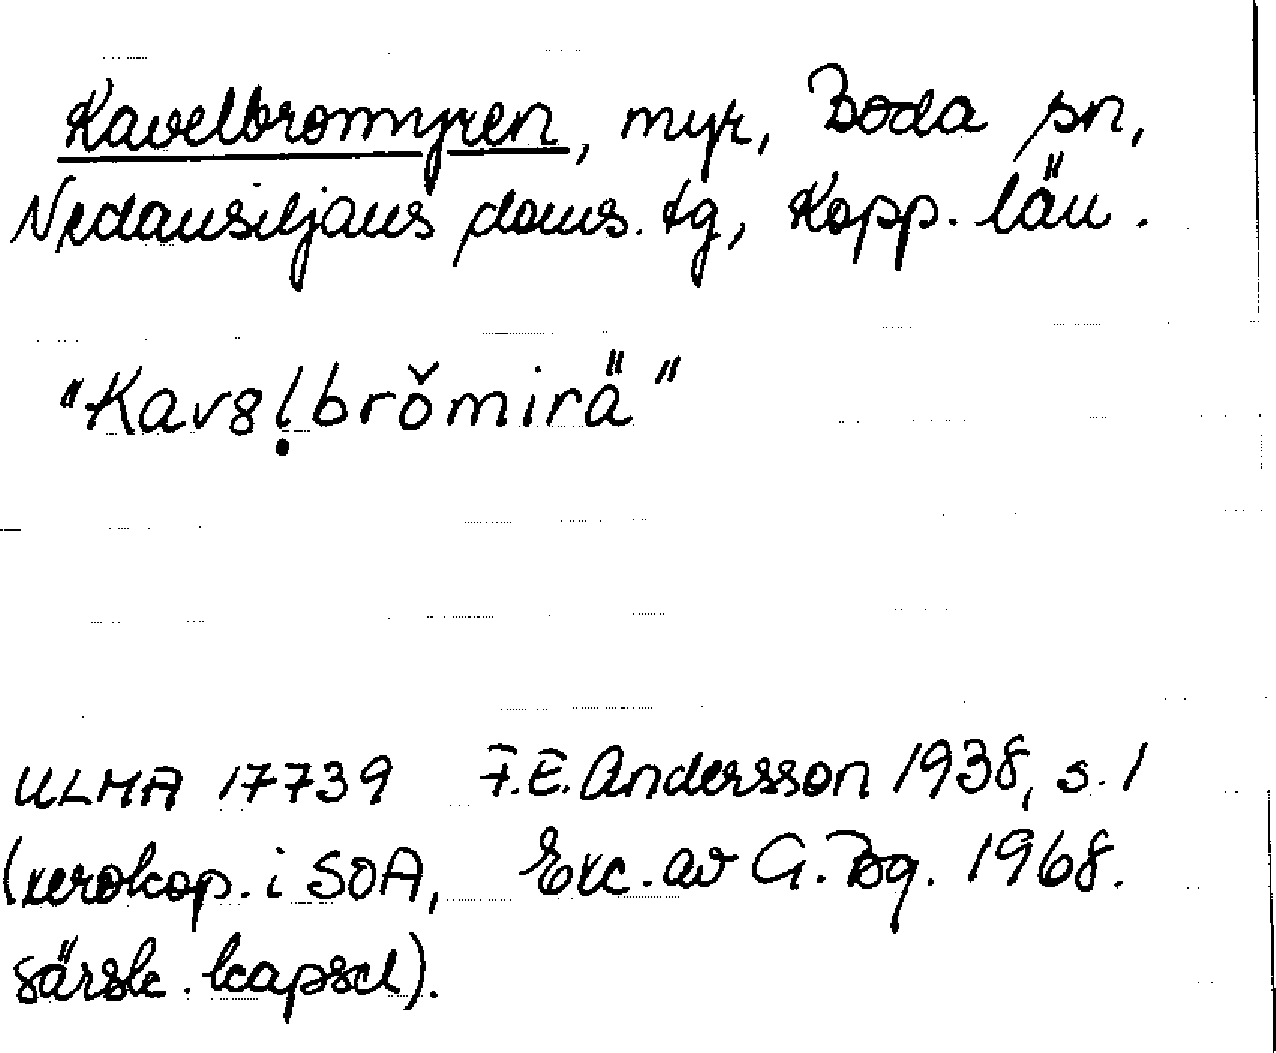 Kavelbromyren, myr, Boda sn,
Nedansiljans doms. tg, Kopp. län.
"Kavsḷbrŏmirä"
ULMA 17739 F.E. Andersson 1938, s. 1
(xerokop. i SOA, Exc. av G. Bg. 1968.
särsk. kapsel).